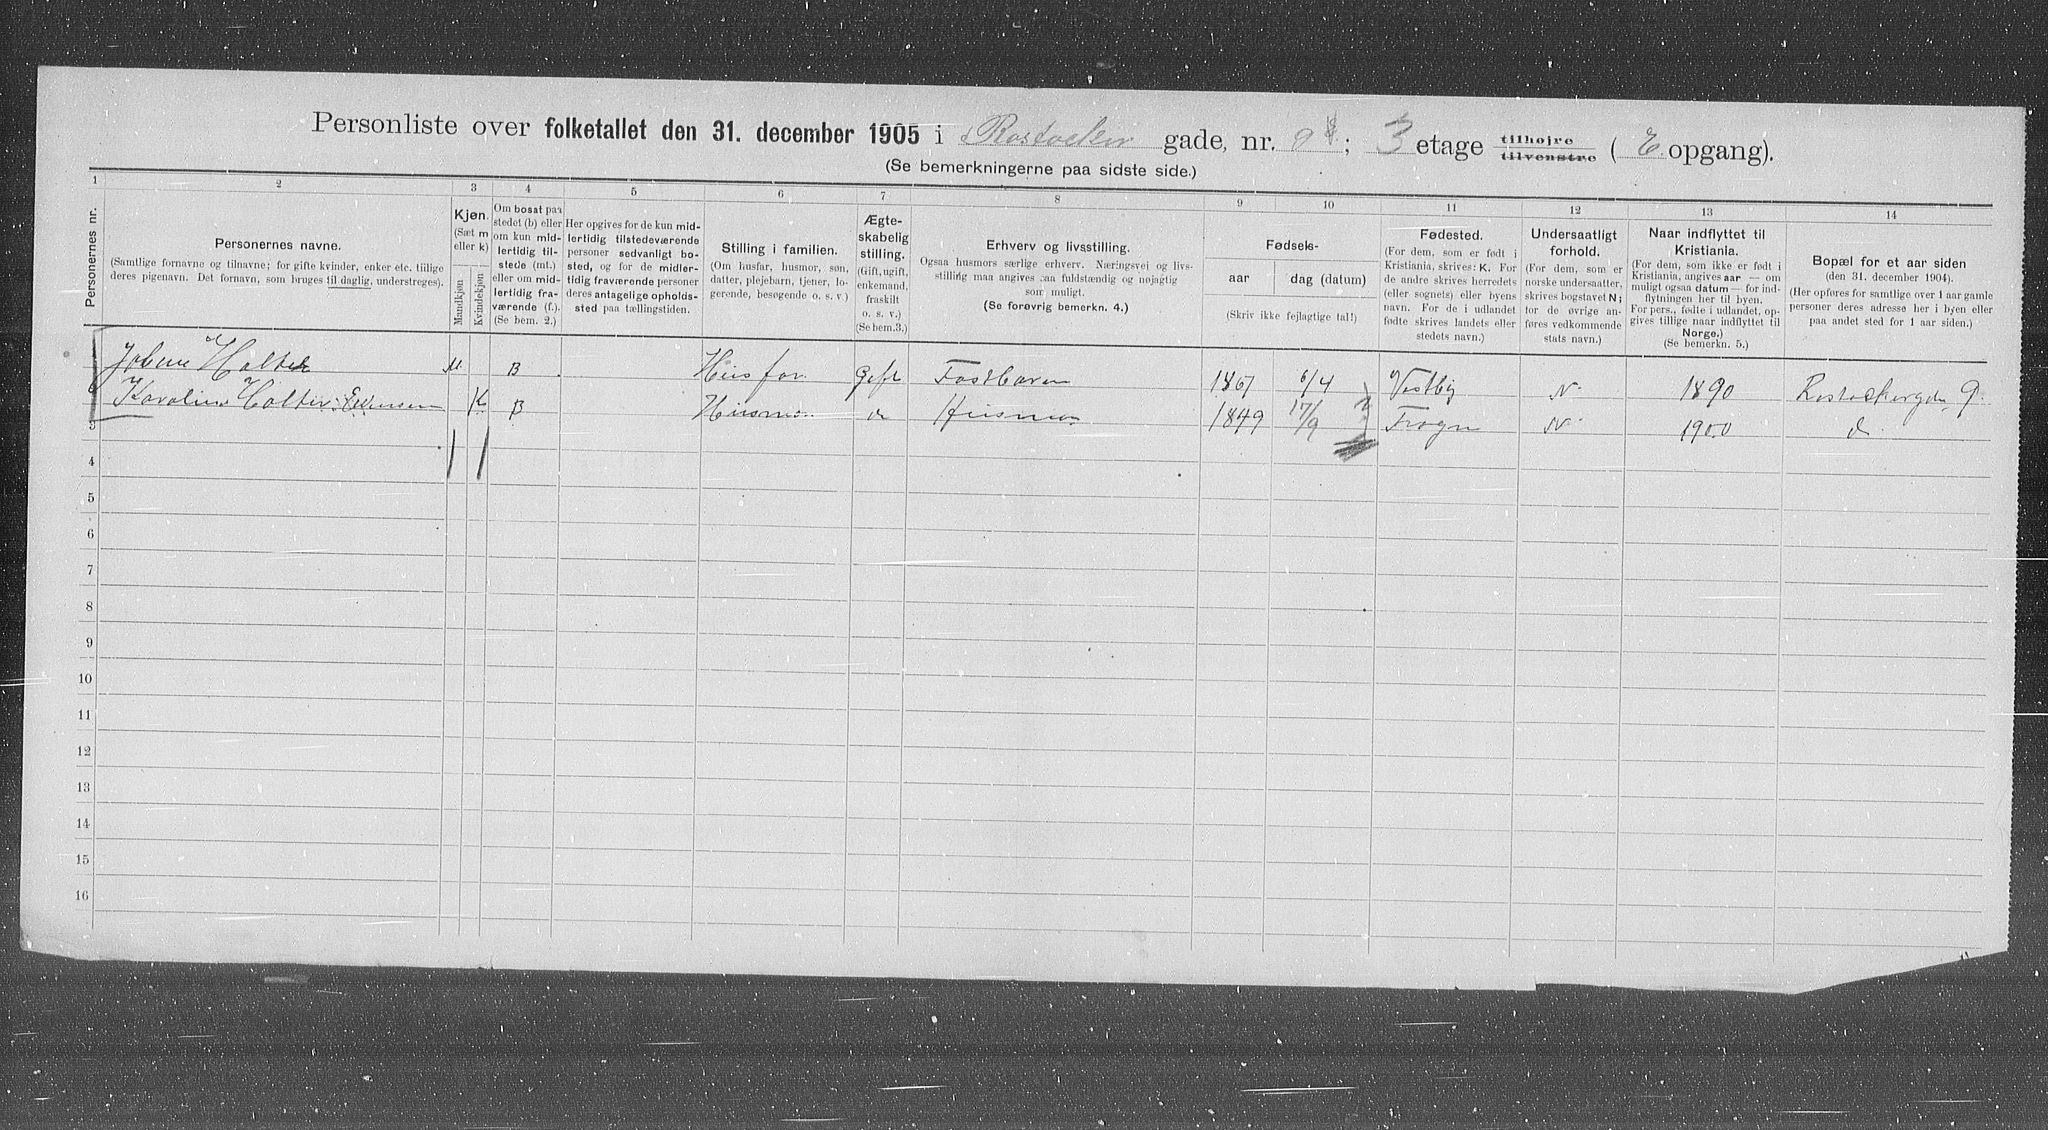 Personliste over folketallet den 31. december 1905 i Rostocker gade, nr. 9; 3 etage tilhøjre tilvenstre ( E opgang).
(Se bemerkningerne paa sidste side.)
1 2 3 4 5 6 7 8 9 10 11 12 13 14
Personernes nr.
Personernes navne.
(Samtlige fornavne og tilnavne; for gifte kvinder, enker etc. tillige
deres pigenavn. Det fornavn, som bruges til daglig, understreges).
Kjøn.
(Sæt m
eller k)
Mandkjøn
Kvindekjøn
Om bosat paa
stedet (b) eller
om kun mid-
lertidig til-
stede (mt.)
eller om mid-
lertidig fra-
værende (f.).
(Se bem. 2.)
Her opgives for de kun mid-
lertidig tilstedeværende
personer sedvanligt bo-
sted, og for de midler-
tidig fraværende personer
deres antagelige opholds-
sted paa tællingstiden.
Stilling i familien.
(Om husfar, husmor, søn,
datter, plejebarn, tjener, lo-
gerende, besøgende o. s. v.)
Ægte-
skabelig
stilling.
(Gift, ugift,
enkemand,
fraskilt
o. s. v.)
(Se bem.3.)
Erhverv og livsstilling.
Ogsaa husmors særlige erhverv. Næringsvei og livs-
stilling maa angives saa fuldstændig og nøjagtig
som muligt.
(Se forøvrig bemerkn. 4.)
Fødsels-
aar dag (datum)
(Skriv ikke fejlagtige tal!)
Fødested.
(For dem, som er født i
Kristiania, skrives: K. For
de andre skrives herredets
(eller sognets) eller byens
navn. For de i udlandet
fødte skrives landets eller
stedets navn.)
Undersaatligt
forhold.
(For dem, som er
norske undersaatter,
skrives bogstavet N;
for de øvrige an-
føres vedkommende
stats navn.)
Naar indflyttet til
Kristiania.
(For dem, som ikke er født i
Kristiania, angives aar — om
muligt ogsaa datum — for ind-
flytningen her til byen.
For pers., fødte i udlandet, op-
gives tillige naar indflyttet til
Norge.)
(Se bemerkn. 5.)
Bopæl for et aar siden
(den 31. december 1904).
(Her opføres for samtlige over 1 aar gamle
personer deres adresse her i byen eller
paa andet sted for 1 aar siden.)
Johan Holter M B Husfar Gift 1867 6/4 Vestby N 1890 Rostockergd. 9
Karoline Holter K B Husmor do Husmor 1849 17/9 Frogn N 1900 do
3
4
5
6
7
8
9
10
11
12
13
14
15
16